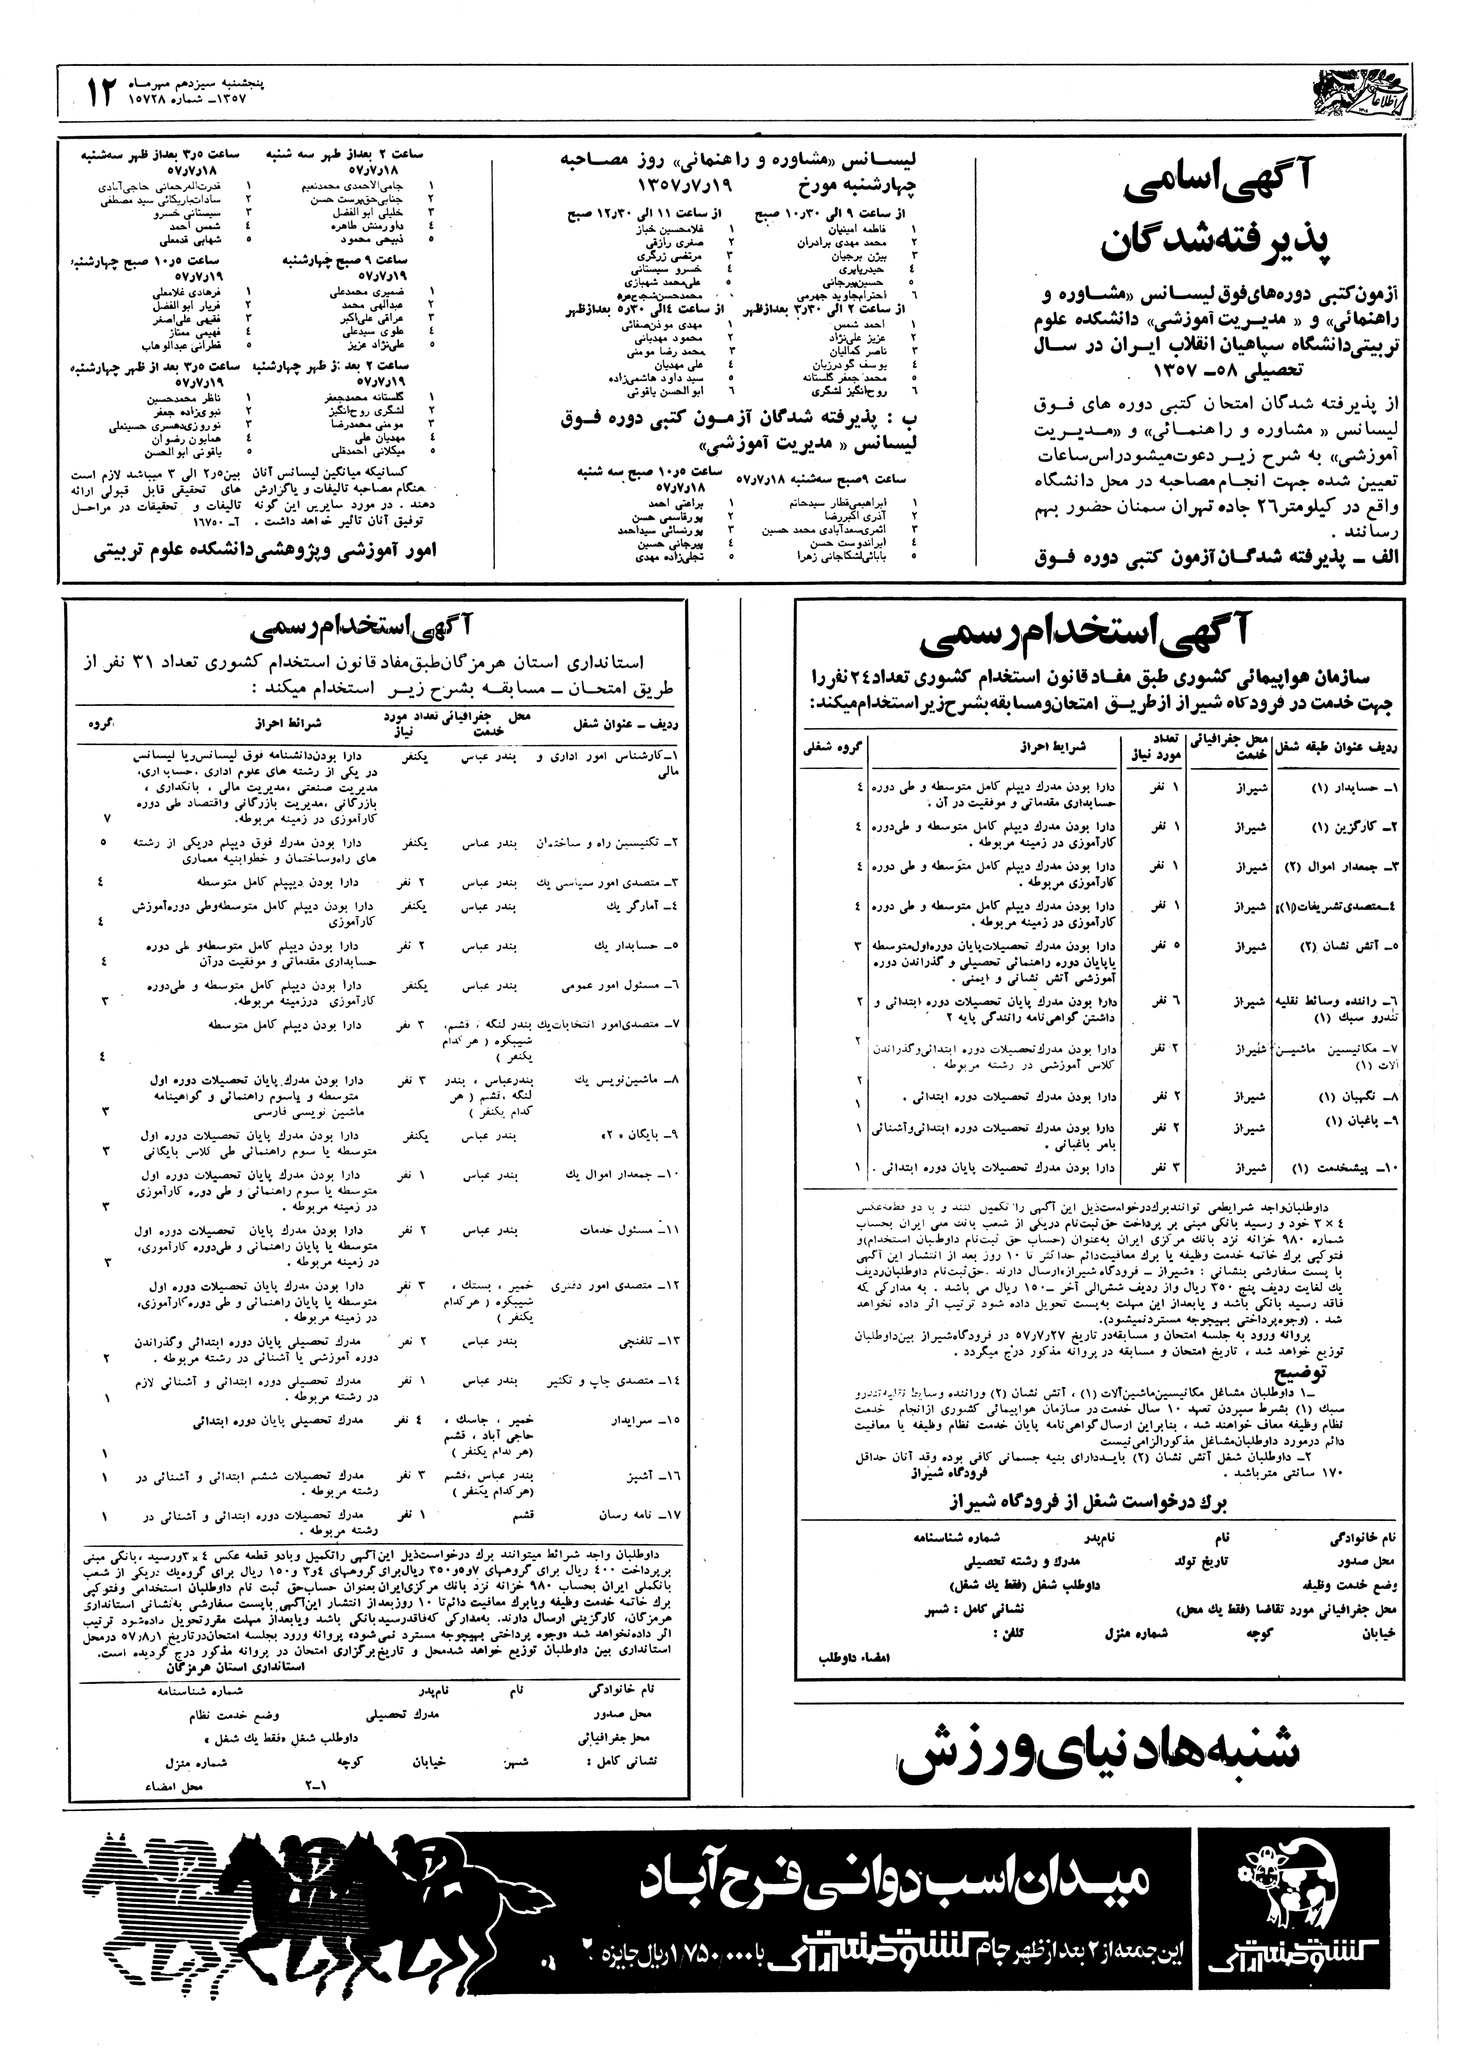 پنجشنبه سیزدهم مهرماه
۱۳۵۷ــ شماره ۱۵۷۲۸
۱۲
اطلاعات
آگهی اسامی
پذیرفته شدگان
آزمون کتبی دوره‌های فوق لیسانس «مشاوره و
راهنمائی» و « مدیریت آموزشی» دانشکده علوم
تربیتی دانشگاه سپاهیان انقلاب ایران در سال
تحصیلی ۵۸ــ ۱۳۵۷
از پذیرفته شدگان امتحان کتبی دوره های فوق
لیسانس « مشاوره و راهنمائی» و «مدیریت
آموزشی» به شرح زیر دعوت میشود راس ساعات
تعیین شده جهت انجام مصاحبه در محل دانشگاه
واقع در کیلومتر ۲۶ جاده تهران سمنان حضور بهم
رسانند .
الف ــ پذیرفته شدگان آزمون کتبی دوره فوق
لیسانس «مشاوره و راهنمائی» روز مصاحبه
چهارشنبه مورخ ۱۳۵۷ر۷ر۱۹
از ساعت ۹ الی ۳۰ر۱۰ صبح
۱ فاطمه امینیان
۲ محمد مهدی برادران
۳ بیژن برجیان
۴ حیدر پاپری
۵ حسین پیرجانی
۶ احترام جاوید جهرمی
از ساعت ۱۱ الی ۳۰ر۱۲ صبح
۱ غلامحسین خباز
۲ صفری رازقی
۳ مرتضی زرگری
۴ خسرو سیستانی
۵ علی محمد شهبازی
محمد حسن شجاع مره
از ساعت ۲ الی ۳۰ر۳ بعدازظهر
۱ احمد شمس
۲ عزیز علی‌نژاد
۳ ناصر کمالیان
۴ یوسف گودرزیان
۵ محمد جعفر گلستانه
۶ روح‌انگیز لشگری
از ساعت ۴ الی ۳۰ر۵ بعدازظهر
۱ مهدی موذن صفائی
۲ محمود مهدیانی
۳ محمد رضا مومنی
۴ علی مهدیان
۵ سید داود هاشمی‌زاده
۶ ابوالحسن یاقوتی
ب : پذیرفته شدگان آزمون کتبی دوره فوق
لیسانس « مدیریت آموزشی»
ساعت ۹ صبح سه‌شنبه ۵۷ر۷ر۱۸
۱ ابراهیمی قطار سیدحاتم
۲ آذری اکبررضا
۳ اثمری سعدآبادی محمد حسین
۴ ایراندوست حسن
۵ بابائی لشکاجانی زهرا
ساعت ۵ر۱۰ صبح سه شنبه
۵۷ر۷ر۱۸
۱ براعتی احمد
۲ پورقاسمی حسن
۳ پورنسائی سیداحمد
۴ پیرجانی حسین
۵ تجلی‌زاده مهدی
ساعت ۲ بعداز ظهر سه شنبه
۵۷ر۷ر۱۸
۱ جامی‌الاحمدی محمدنعیم
۲ جنابی حق‌پرست حسن
۳ خلیلی ابوالفضل
۴ داورمنش طاهره
۵ ذبیحی محمود
ساعت ۵ر۳ بعداز ظهر سه‌شنبه
۵۷ر۷ر۱۸
۱ قدرت‌اله رحمانی حاجی‌آبادی
۲ سادات باریکائی سید مصطفی
۳ سیستانی خسرو
۴ شمس احمد
۵ شهابی قدمعلی
ساعت ۹ صبح چهارشنبه
۵۷ر۷ر۱۹
۱ ضمیری محمدعلی
۲ عبدالهی محمد
۳ عراقی علی‌اکبر
۴ علوی سیدعلی
۵ علی‌نژاد عزیز
ساعت ۵ر۱۰ صبح چهارشنبه
۵۷ر۷ر۱۹
۱ فرهادی غلامعلی
۲ فریار ابوالفضل
۳ فقیهی علی‌اصغر
۴ فهیمی ممتاز
۵ قطرانی عبدالوهاب
ساعت ۲ بعد از ظهر چهارشنبه
۵۷ر۷ر۱۹
۱ گلستانه محمدجعفر
۲ لشگری روح‌انگیز
۳ مومنی محمدرضا
۴ مهدیان علی
۵ میکلانی احمدقلی
ساعت ۵ر۳ بعد از ظهر چهارشنبه
۵۷ر۷ر۱۹
۱ ناظر محمدحسین
۲ نبوی‌زاده جعفر
۳ نوروزی دهسری حسینعلی
۴ همایون رضوان
۵ یاقوتی ابوالحسن
کسانیکه میانگین لیسانس آنان بین ۵ر۲ الی ۳ میباشد لازم است
هنگام مصاحبه تالیفات و یا گزارش های تحقیقی قابل قبولی ارائه
دهند . در مورد سایرین این گونه تالیفات و تحقیقات در مراحل
توفیق آنان تاثیر خواهد داشت . آــ ۱۶۷۵۰
امور آموزشی و پژوهشی دانشکده علوم تربیتی
آگهی استخدام رسمی
سازمان هواپیمائی کشوری طبق مفاد قانون استخدام کشوری تعداد ۲۴ نفر را
جهت خدمت در فرودگاه شیراز از طریق امتحان و مسابقه بشرح زیر استخدام میکند:
ردیف عنوان طبقه شغل محل جغرافیائی خدمت تعداد مورد نیاز شرایط احراز گروه شغلی
۱ــ حسابدار (۱) شیراز ۱ نفر دارا بودن مدرک دیپلم کامل متوسطه و طی دوره ۴
حسابداری مقدماتی و موفقیت در آن .
۲ــ کارگزین (۱) شیراز ۱ نفر دارا بودن مدرک دیپلم کامل متوسطه و طی دوره ۴
کارآموزی در زمینه مربوطه .
۳ــ جمعدار اموال (۲) شیراز ۱ نفر دارا بودن مدرک دیپلم کامل متوسطه و طی دوره ۴
کارآموزی مربوطه .
۴ــ متصدی تشریفات (۱) شیراز ۱ نفر دارا بودن مدرک دیپلم کامل متوسطه و طی دوره ۴
کارآموزی در زمینه مربوطه .
۵ــ آتش نشان (۲) شیراز ۵ نفر دارا بودن مدرک تحصیلات پایان دوره اول متوسطه ۳
یا پایان دوره راهنمائی تحصیلی و گذراندن دوره
آموزشی آتش نشانی و ایمنی .
۶ــ راننده وسائط نقلیه شیراز ۶ نفر دارا بودن مدرک پایان تحصیلات دوره ابتدائی و ۲
تندرو سبک (۱) داشتن گواهی نامه رانندگی پایه ۲
۷ــ مکانیسین ماشین شیراز ۲ نفر دارا بودن مدرک تحصیلات دوره ابتدائی و گذراندن ۲
آلات (۱) کلاس آموزشی در رشته مربوطه .
۲
۸ــ نگهبان (۱) شیراز ۲ نفر دارا بودن مدرک تحصیلات دوره ابتدائی . ۱
۹ــ باغبان (۱) شیراز ۲ نفر دارا بودن مدرک تحصیلات دوره ابتدائی و آشنائی ۱
بامر باغبانی .
۱۰ــ پیشخدمت (۱) شیراز ۳ نفر دارا بودن مدرک تحصیلات پایان دوره ابتدائی . ۱
داوطلبان واجد شرایط می توانند برک درخواست ذیل این آگهی را تکمیل کنند و با دو قطعه عکس
۴ × ۳ خود و رسید بانکی مبنی بر پرداخت حق ثبت نام دریکی از شعب بانک ملی ایران بحساب
شماره ۹۸۰ خزانه نزد بانک مرکزی ایران به‌عنوان (حساب حق ثبت‌نام داوطلبان استخدام) و
فتوکپی برک خاتمه خدمت وظیفه یا برک معافیت دائم حداکثر تا ۱۰ روز بعد از انتشار این آگهی
با پست سفارشی بنشانی : «شیراز ــ فرودگاه شیراز» ارسال دارند . حق ثبت نام داوطلبان ردیف
یک لغایت ردیف پنج ۳۵۰ ریال واز ردیف شش الی آخر ــ ۱۵۰ ریال می باشد . به مدارکی که
فاقد رسید بانکی باشد و یا بعد از این مهلت به‌پست تحویل داده شود ترتیب اثر داده نخواهد
شد . (وجوه پرداختی بهیچوجه مسترد نمیشود).
پروانه ورود به جلسه امتحان و مسابقه در تاریخ ۵۷ر۷ر۲۷ در فرودگاه شیراز بین داوطلبان
توزیع خواهد شد ، تاریخ امتحان و مسابقه در پروانه مذکور درج میگردد .
توضیح
۱ــ داوطلبان مشاغل مکانیسین ماشین‌آلات (۱) ، آتش نشان (۲) و راننده وسایط نقلیه تندرو
سبک (۱) بشرط سپردن تعهد ۱۰ سال خدمت در سازمان هواپیمائی کشوری از انجام خدمت
نظام وظیفه معاف خواهند شد ، بنابراین ارسال گواهی نامه پایان خدمت نظام وظیفه یا معافیت
دائم درمورد داوطلبان مشاغل مذکور الزامی نیست
۲ــ داوطلبان شغل آتش نشان (۲) باید دارای بنیه جسمانی کافی بوده وقد آنان حداقل
۱۷۰ سانتی متر باشد . فرودگاه شیراز
برک درخواست شغل از فرودگاه شیراز
نام خانوادگی نام نام‌پدر شماره شناسنامه
محل صدور تاریخ تولد مدرک و رشته تحصیلی
وضع خدمت وظیفه داوطلب شغل (فقط یک شغل)
محل جغرافیائی مورد تقاضا (فقط یک محل) نشانی کامل : شهر
خیابان کوچه شماره منزل تلفن :
امضاء داوطلب
شنبه‌ها دنیای ورزش
آگهی استخدام رسمی
استانداری استان هرمزگان طبق مفاد قانون استخدام کشوری تعداد ۳۱ نفر از
طریق امتحان ــ مسابقه بشرح زیر استخدام میکند :
ردیف ــ عنوان شغل محل جغرافیائی خدمت تعداد مورد نیاز شرائط احراز گروه
۱ــ کارشناس امور اداری و مالی بندر عباس یکنفر دارا بودن دانشنامه فوق لیسانس و یا لیسانس
در یکی از رشته های علوم اداری ،حسابداری،
مدیریت صنعتی ،مدیریت مالی ، بانکداری ،
بازرگانی ،مدیریت بازرگانی واقتصاد طی دوره
کارآموزی در زمینه مربوطه. ۷
۲ــ تکنیسین راه و ساختمان بندر عباس یکنفر دارا بودن مدرک فوق دیپلم دریکی از رشته ۵
های راه وساختمان و خطوابنیه معماری
۳ــ متصدی امور سیاسی یک بندر عباس ۲ نفر دارا بودن دیپلم کامل متوسطه ۴
۴ــ آمارگر یک بندر عباس یکنفر دارا بودن دیپلم کامل متوسطه وطی دوره آموزش
کارآموزی ۴
۵ــ حسابدار یک بندر عباس ۲ نفر دارا بودن دیپلم کامل متوسطه و طی دوره
حسابداری مقدماتی و موفقیت درآن ۴
۶ــ مسئول امور عمومی بندر عباس یکنفر دارا بودن دیپلم کامل متوسطه و طی دوره
کارآموزی درزمینه مربوطه. ۳
۷ــ متصدی امور انتخابات یک بندر لنگه ، قشم، ۳ نفر دارا بودن دیپلم کامل متوسطه
شیبکوه ( هر کدام
یکنفر ) ۴
۸ــ ماشین نویس یک بندرعباس ، بندر ۳ نفر دارا بودن مدرک پایان تحصیلات دوره اول
لنگه ،قشم ( هر متوسطه و یاسوم راهنمائی و گواهینامه
کدام یکنفر ) ماشین نویسی فارسی ۳
۹ــ بایگان «۲» بندر عباس یکنفر دارا بودن مدرک پایان تحصیلات دوره اول
متوسطه یا سوم راهنمائی طی کلاس بایگانی ۳
۱۰ــ جمعدار اموال یک بندر عباس ۱ نفر دارا بودن مدرک تحصیلات دوره اول
متوسطه یا سوم راهنمائی و طی دوره کارآموزی
در زمینه مربوطه . ۳
۱۱ــ مسئول خدمات بندر عباس ۲ نفر دارا بودن مدرک پایان تحصیلات دوره اول
متوسطه یا پایان راهنمائی و طی‌دوره کارآموری،
در زمینه مربوطه . ۳
۱۲ــ متصدی امور دفتری خمیر ، بستک ، ۳ نفر دارا بودن مدرک تحصیلات دوره اول
شیبکوه ( هر کدام متوسطه یا پایان راهنمائی و طی دوره کارآموزی،
یکنفر ) در زمینه مربوطه .
۱۳ــ تلفنچی بندر عباس ۲ نفر مدرک تحصیلی پایان دوره ابتدائی وگذراندن
دوره آموزشی یا آشنائی در رشته مربوطه . ۲
۱۴ــ متصدی چاپ و تکثیر بندر عباس ۱ نفر مدرک تحصیلی دوره ابتدائی و آشنائی لازم
در رشته مربوطه . ۱
۱۵ــ سرایدار خمیر ، جاسک ، ۴ نفر مدرک تحصیلی پایان دوره ابتدائی
حاجی آباد ، قشم
(هر کدام یکنفر ) ۱
۱۶ــ آشپز بندر عباس ،قشم ۳ نفر مدرک تحصیلات ششم ابتدائی و آشنائی در ۱
(هر کدام یکنفر ) رشته مربوطه .
۱۷ــ نامه رسان قشم ۱ نفر مدرک تحصیلات دوره ابتدائی و آشنائی در ۱
رشته مربوطه .
داوطلبان واجد شرائط میتوانند برک درخواست ذیل این آگهی راتکمیل وبادو قطعه عکس ۴ × ۳ ورسید ،بانکی مبنی
برپرداخت ۴۰۰ ریال برای گروههای ۷ و۵ و ۳۵۰ ریال برای گروههای ۴ و ۳ و ۱۵۰ ریال برای گروه یک دریکی از شعب
بانک ملی ایران بحساب ۹۸۰ خزانه نزد بانک مرکزی ایران بعنوان حساب حق ثبت نام داوطلبان استخدامی وفتوکپی
برک خاتمه خدمت وظیفه ویابرک معافیت دائم تا ۱۰ روز بعداز انتشار این آگهی باپست سفارشی به‌نشانی استانداری
هرمزگان، کارگزینی ارسال دارند. به‌مدارکی که فاقد رسید بانکی باشد ویابعداز مهلت مقررتحویل داده شود ترتیب
اثر داده نخواهد شد «وجوه پرداختی بهیچوجه مسترد نمی شود» پروانه ورود بجلسه امتحان درتاریخ ۵۷ر۸ر۱ درمحل
استانداری بین داوطلبان توزیع خواهد شد محل و تاریخ برگزاری امتحان در پروانه مذکور درج گردیده است.
استانداری استان هرمزگان
نام خانوادگی نام نام‌پدر شماره شناسنامه
محل صدور مدرک تحصیلی وضع خدمت نظام
محل جغرافیائی داوطلب شغل «فقط یک شغل »
نشانی کامل : شهر: خیابان کوچه شماره منزل
۱ــ۲ محل امضاء
کشت و صنعت اراک
میدان اسب دوانی فرح آباد
این جمعه از ۲ بعد از ظهر جام کشت و صنعت اراک با ۱/۷۵۰/۰۰۰ ریال جایزه